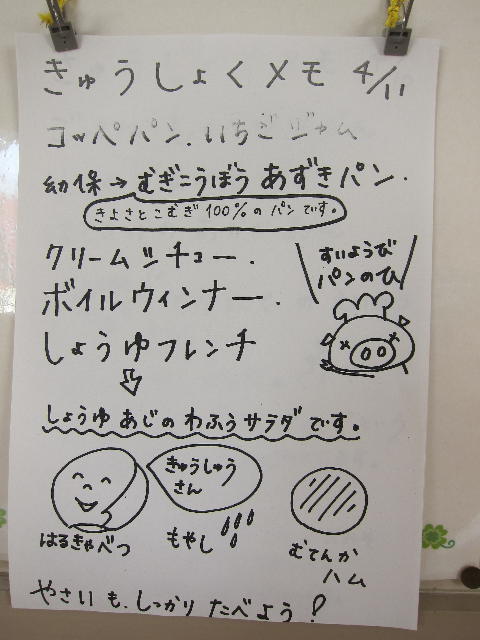 きゅうしょくメモ 4/11
コッペパン.いちごジャム
幼保→むぎこうぼう あずきパン.
きよさとこむぎ 100%の パンです。
クリームシチュー.
すいようび
パンのひ
ボイルウィンナー.
しょうゆフレンチ
しょうゆ あじの わふうサラダです。
きゅうしゅう
さん
はるきゃべつ
もやし
むてんか
ハム
やさいも、しっかり たべよう!